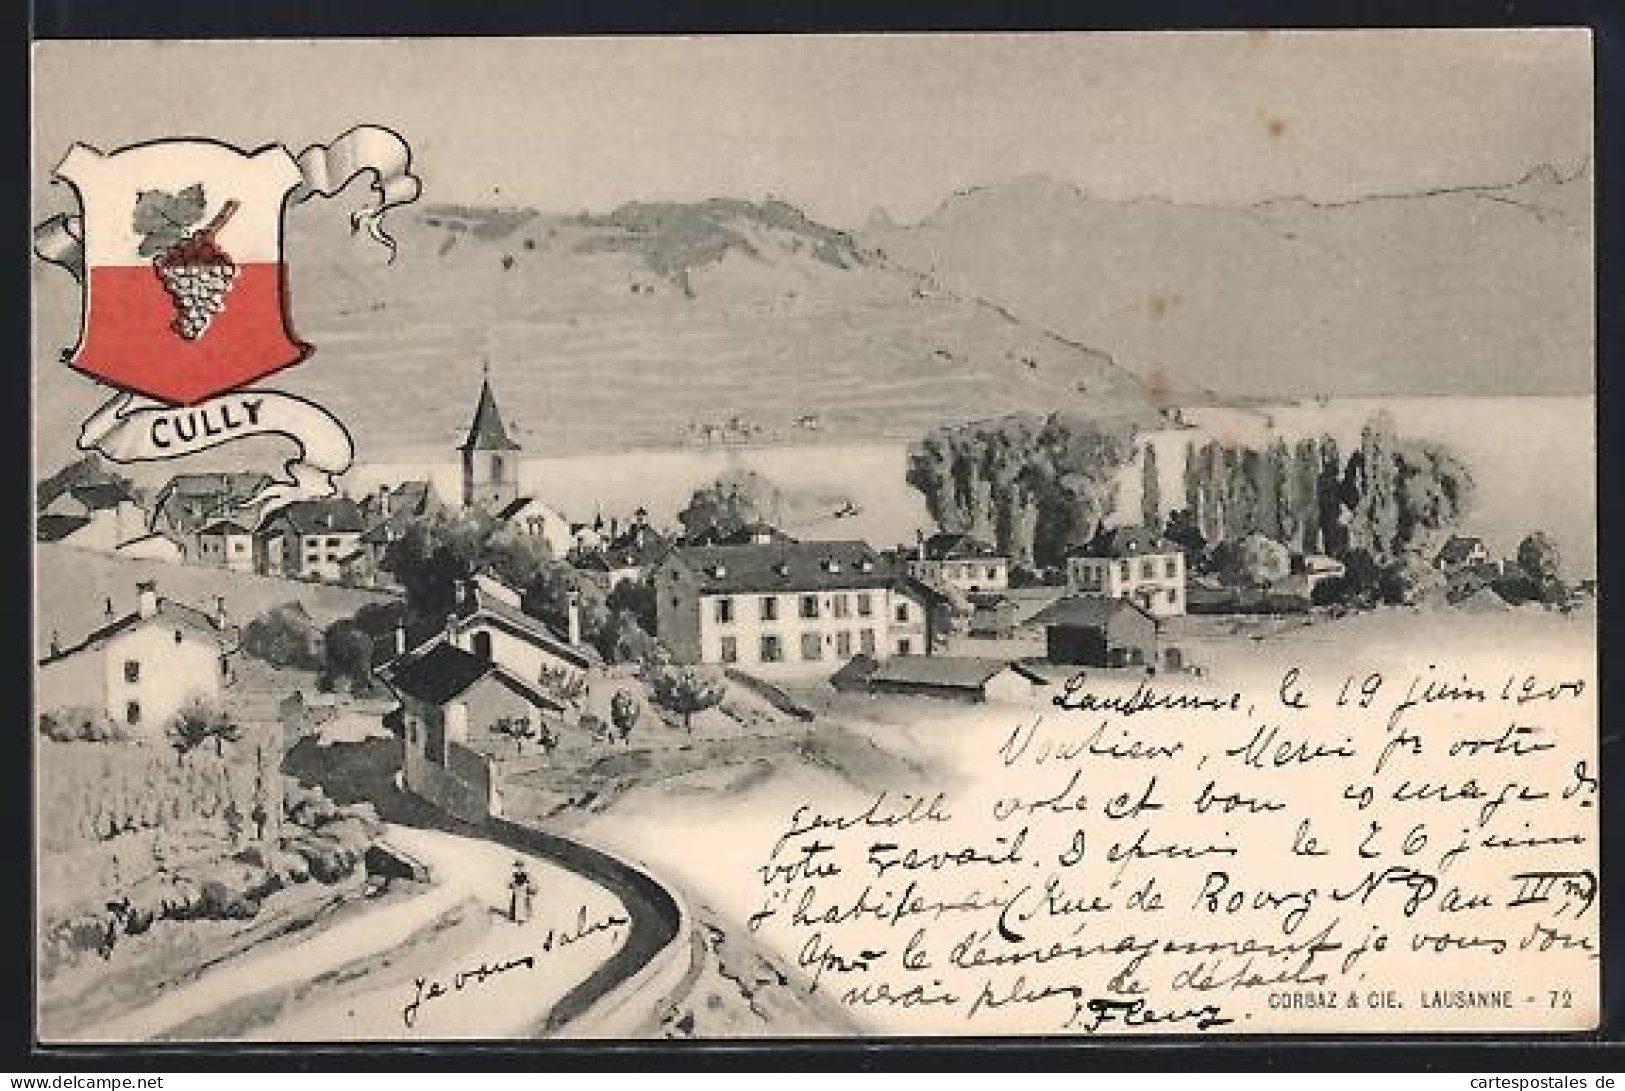 CULLY
Lausanne, le 19 juin 1900
Merci pr votre
gentille carte et bon courage de
votre travail. Depuis le 26 juin
j'habiterai (Rue de Bourg No 8 au IIIme)
Après le déménagement je vous don-
nerai plus de détails.
Je vous salue
J. Fleury.
CORBAZ & CIE. LAUSANNE - 72
cartespostales de
www.cartespostales.de